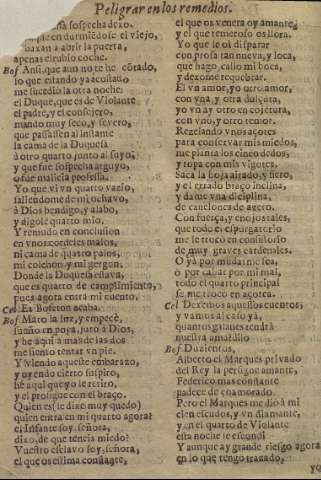 Peligrar en los remedios.
sospecha dexo.
en durmiẽdose el viejo,
baxan a abrir la puerta,
apenas el rubio coche.
Bof Ansi, que aun no te he cõtado,
lo que estando ya acostado
me sucediò la otra noche:
el Duque, que es de Violante
el padre, y el consejero,
mando muy seco, y seuero,
que passassen al instante
la cama de la Duquesa
à otro quarto junto al suyo;
y que fue sospecha arguyo,
ò fue malicia professa.
Yo que vi vn quarto vazio,
saliendome de mi ochauo,
à Dios bendigo, y alabo,
y algole quarto mio.
Y remudo en conclusion
en vnos cordeles malos,
ni cama de quatro palos,
mi colchon, y mi gergon.
Donde la Duquesa estaua,
que es quarto de campliimiento,
pues agora entra mi cuento.
Cel Ea Bofeton acaba.
Bof Mato la luz, y empecè,
sueño en popa, juro à Dios,
y he aqui à mas de las dos
me siento tentar vn pie.
Y viendo aqueste embarazo,
y oyendo cierto suspiro,
hè aqui que yo le retiro,
y el prosigue con el braço.
Quien es (le dixe muy quedo)
quien entra en mi quarto agora?
el Infante soy, señora,
dixo, de que teneis miedo?
Vuestro esclauo soy, señora,
el que os estima constante,
el que os venera oy amante,
y el que temeroso os llora.
Yo que le oì disparar
con prosa tan nueua, y loca,
que hago, callo mi boca,
y dexome requebrar.
El vn amor, yo otro amor,
con vna, y otra dulçura,
yo vn ay otro en cõjetura,
con vno, y otro temor.
Rezelando vnos açotes
para conseruar mis miedos,
me planta los cinco dedos,
y topa con mis vigotes.
Saca la hoja airado, y fiero,
y el errado braço inclina,
y dame vna diciplina,
de canelones de azero.
Con fuerça, y enojos tales,
que todo el espurgatorio
me le troco en consistorio
de muy graues cardenales.
O ya por mudarme sea,
ò por callar por mi mal,
todo el quarto principal
se me troco en açotea.
Cel Dexemos aquessos cuentos,
y vamos al caso ya,
quantos galanes tendrà
nuestra ama?dilo
Bof Duzientos,
Alberto el Marques priuado
del Rey la persigue amante,
Federico mas constante
padece de enamorado.
Pero el Marques me diò à mi
cien escudos, y vn diamante,
y en el quarto de Violante
esta noche le escondi
Y aunque ay grande riesgo agora
en lo que tengo trazado,